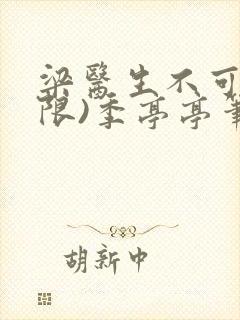 梁醫生不可
限)季亭亭
胡新中